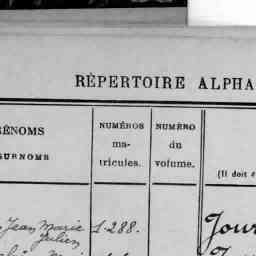 RÉPERTOIRE ALPHA
RÉNOMS
SURNOMS
NUMÉROS
ma-
tricules.
NUMÉRO
du
volume.
(Il doit ê
Jean Marie
Julien
1.288.
Jour